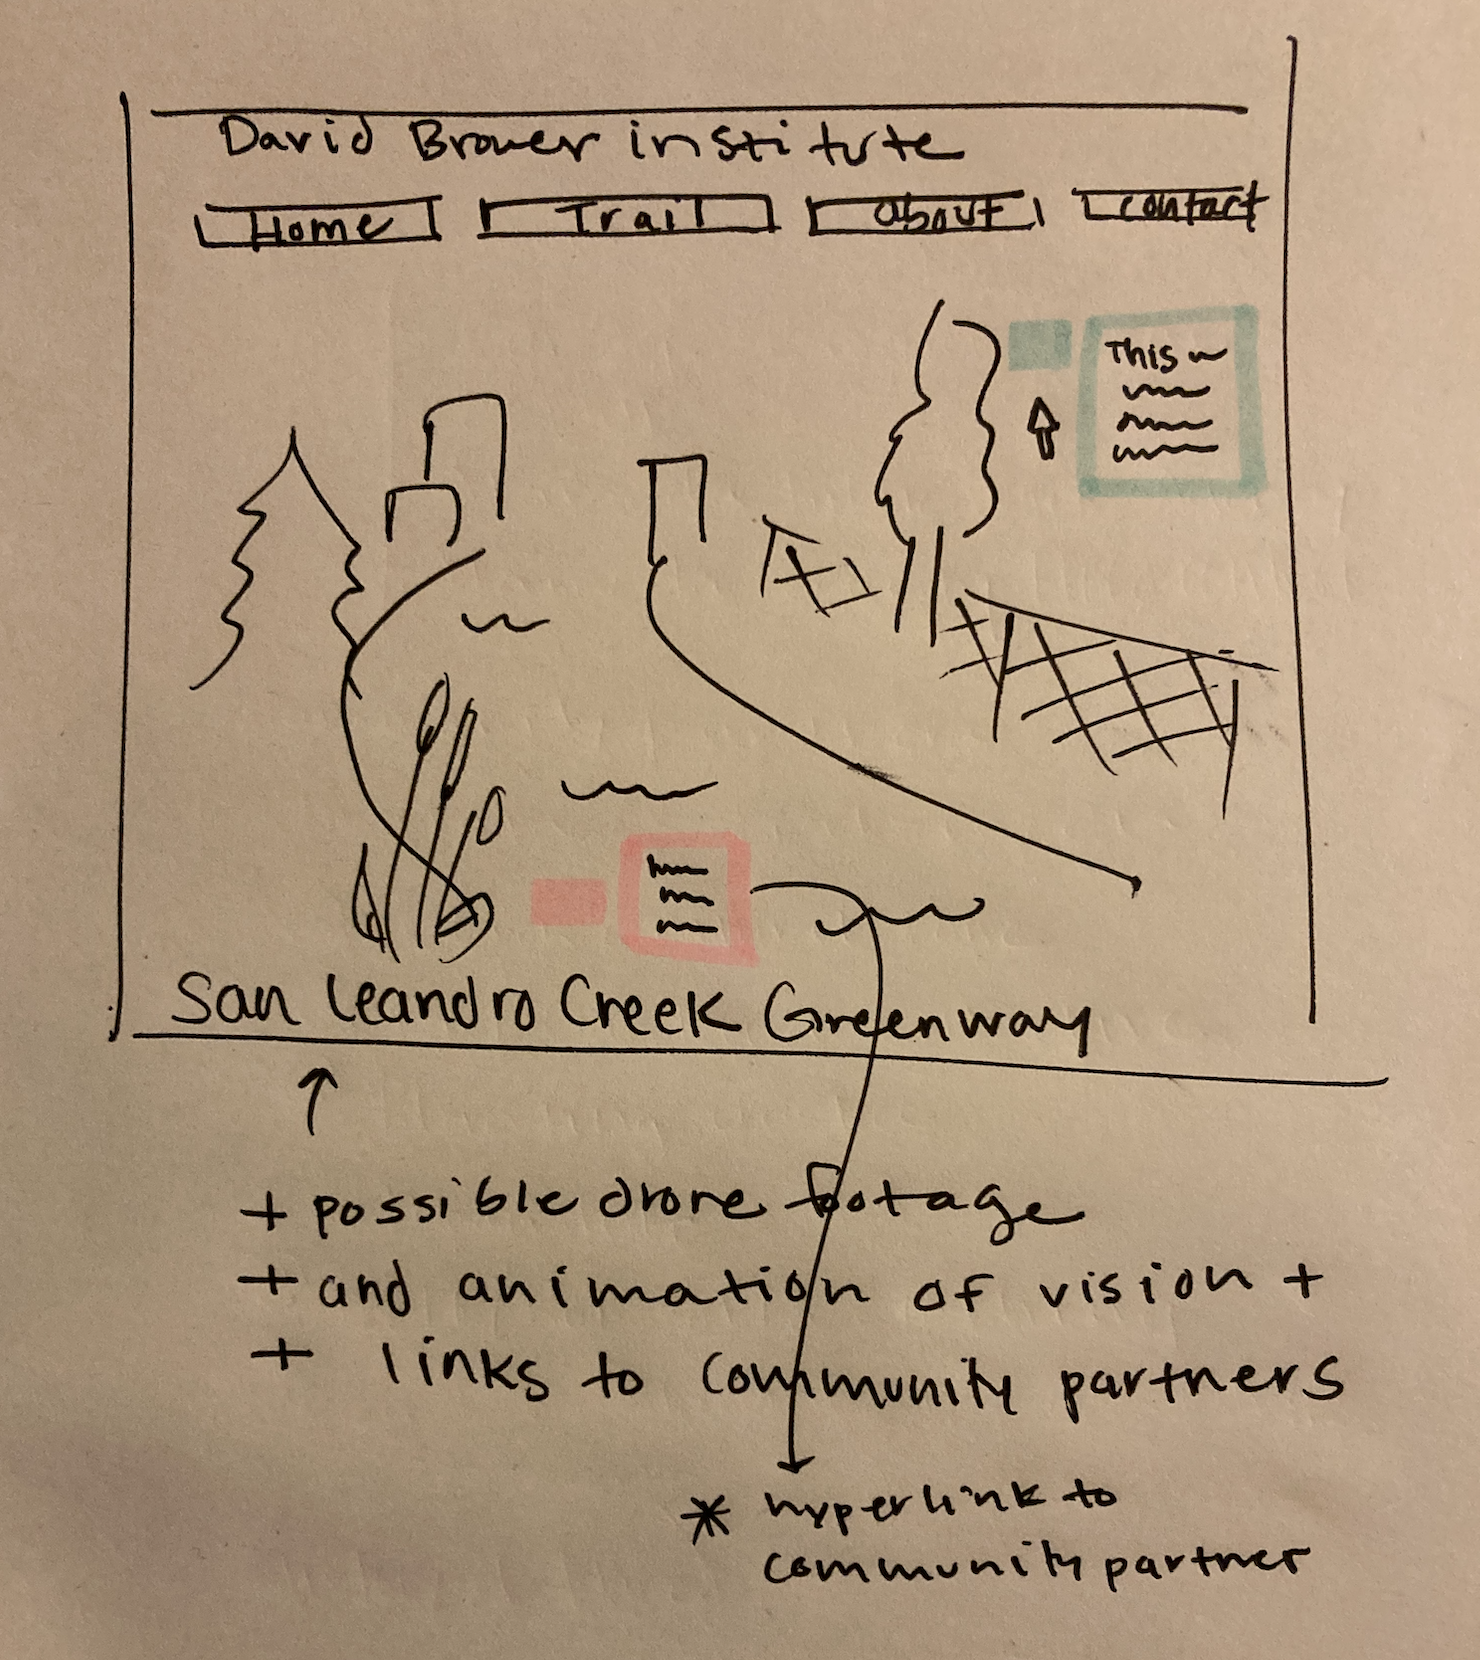 David Brower institute
Home Trail About contact
This
San Leandro Creek Greenway
+ possible drone footage
+ and animation of vision +
+ links to community partners
* hyperlink to
community partner